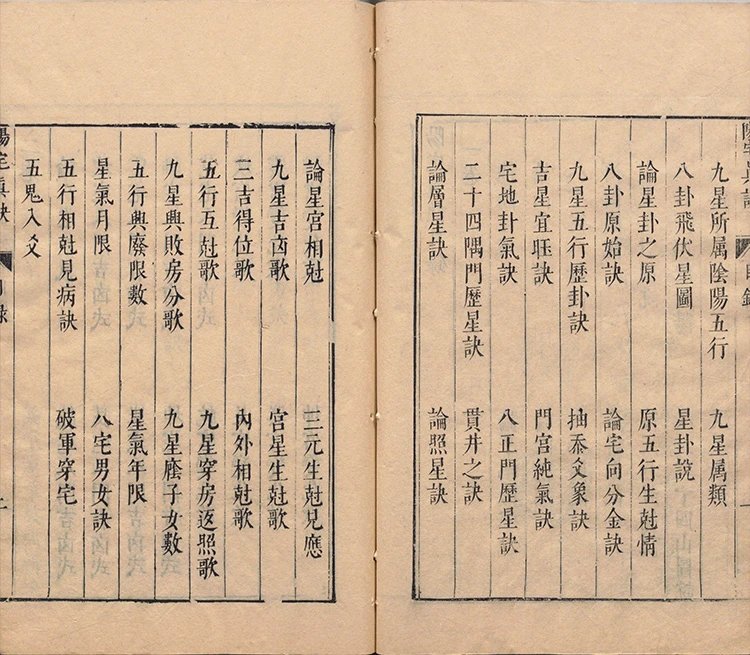 九星所属陰陽五行 九星属類
八卦飛伏星圖 星卦說
論星卦之原 原五行生尅情
八卦原始訣 論宅向分金訣
九星五行歷卦訣 抽爻象訣
吉星宜旺訣 門宮純氣訣
宅地卦氣訣 八正門歷星訣
二十四隅門歷星訣 貫井之訣
論層星訣 論照星訣
論星宮相尅 三元生尅見應
九星吉凶歌 宮星生尅歌
三吉得位歌 內外相尅歌
五行互尅歌 九星穿房返照歌
九星興敗房分歌 九星應子女數
五行興廢限數 星氣年限
星氣月限 八宅男女訣
五行相尅見病訣 破軍穿宅
五鬼入爻
陽宅真訣 目錄